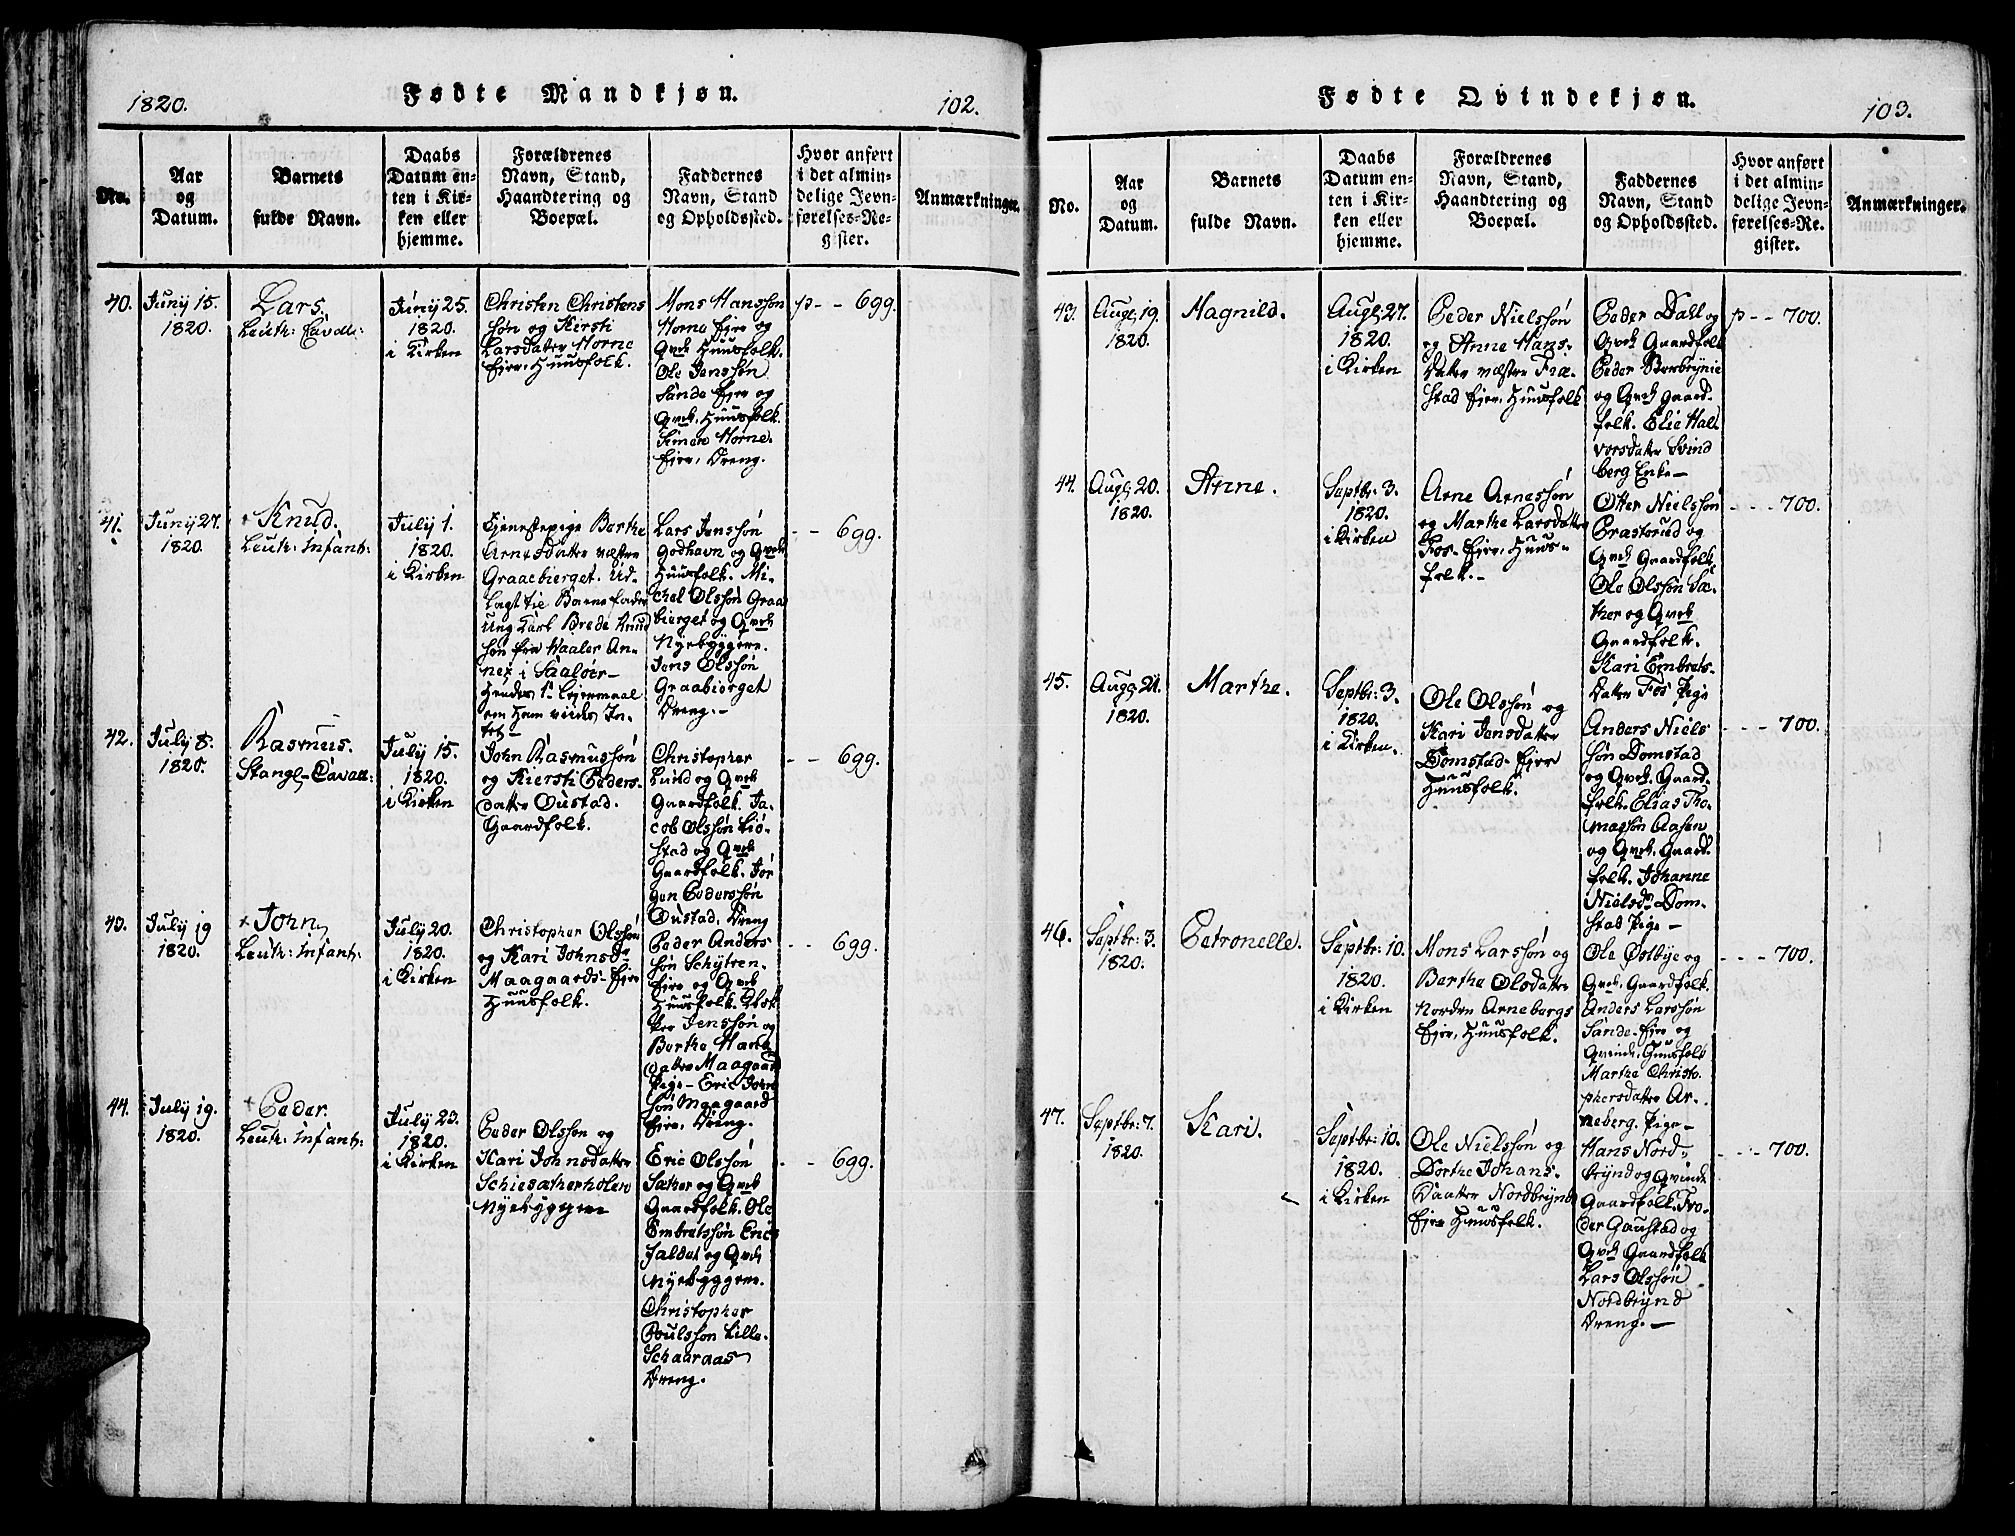 1820.
Fødte Mandkjøn.
102.
No.
Aar
og
Datum.
Barnets
fulde Navn.
Daabs
Datum en-
ten i Kir-
ken eller
hjemme.
Forældrenes
Navn, Stand,
Haandtering og
Boepæl.
Faddernes
Navn, Stand
og Opholdssted.
Hvor anført
i det almin-
delige Jevn-
førelses-Re-
gister.
Anmærkninger.
40.
Juny 15.
1820.
Lars.
Leuth: Cavall:
Juny 25.
1820.
i Kirken
Christen Christens
søn og Kiersti
Larsdatter Horne
Ejer, Huusfolk.
Mons Hanssøn
Horne Ejer og
Qvck Huusfolk.
Ole Jenssøn
Sande Ejer og
Qvck. Huusfolk.
Simen Horne
Ejer, Dreng.
p-- 699.
41.
Juny 27.
1820.
+ Knud.
Leuth: Infant:
July 1.
1820.
i Kirken
Tjenestepige Berthe
Arnesdatter væstre
Graaebierget. Ud-
lagt til Barnefader
Ung Karl Brede Knud
søn fra Vaaler An-
nex i Saaløer-
Hendes 1te Lejermaal
om Ham vides In-
tet-
Lars Jenssøn
Godhavn og Qvck
Huusfolk. Mi-
chel Olssøn Graa
bierget og Qvck
Nyebyggere.
Jens Olssøn
Graabierget
Dreng.-
-- 699.
42.
July 8.
1820.
Rasmus.
Stangl-Cavall:
July 15.
1820.
i Kirken
John Rasmussøn
og Kiersti Peders-
datter Oustad.
Gaardfolk.
Christopher
Lund og Qvck
Gaardfolk. Ja-
cob Olssøn Kiø-
stad og Qvck
Gaardfolk. Jør
gen Pederssøn
Oustad, Dreng
-- 699.
43.
July 19
1820.
+ John,
Leuth: Infant:
July 20.
1820.
i Kirken
Christopher Olssøn
og Kari Johnsdr
Maagaards-Ejer
Huusfolk.
Peder Anders
søn Schytren-
Ejer og Qvck
Huusfolk.
Jenssøn og
Berthe Hans
datter Maagaard
Pige- Eric John
søn Maagaard
Ejer, Dreng.
-- 699.
44.
July 19.
1820.
+ Peder.
Leuth: Infant:
July 23.
1820.
i Kirken
Peder Olssøn og
Kari Johnsdatter
Schiesætherholen
Nyebyggere
Eric Olssøn
Sæther og Qvck
Gaardfolk. Ole
Embretssøn Erics
faldet og Qvck
Nyebyggere.
Christopher
Poulssøn Lille-
Schaaraas
Dreng.
-- 699.
Fødte Qvindekjøn.
103.
No.
Aar
og
Datum.
Barnets
fulde Navn.
Daabs
Datum en-
ten i Kir-
ken eller
hjemme.
Forældrenes
Navn, Stand,
Haandtering og
Boepæl.
Faddernes
Navn, Stand
og Opholdssted.
Hvor anført
i det almin-
delige Jevn-
førelses-Re-
gister.
Anmærkninger.
43.
Augl; 19.
1820.
Magnild.
Augl; 27.
1820.
i Kirken
Peder Nielssøn
og Anne Hans-
Datter væstre Fræ-
stad Ejer, Huusfolk
Peder Dahl og
Qvck Gaardfolk
Peder Berbrynie
og Qvck Gaard-
folk. Elie Hal
vorsdatter Svind
berg Enke-
p-- 700.
44.
Augl; 20.
1820.
Anne.
Septbr: 3.
1820.
i Kirken
Arne Arnessøn
og Marthe Larsdatter
Fos-Ejer, Huus-
folk.-
Otter Nielssøn
Præstorud og
Qvck Gaardfolk.
Ole Olssøn Sæ-
ther og Qvck
Gaardfolk.
Kari Embrets-
datter Fos Pige
--- 700.
45.
Augl; 21.
1820.
Marthe.
Septbr: 3.
1820.
i Kirken.
Ole Olssøn og
Kari Jensdatter
Domstad-Ejer
Huusfolk.
Anders Niels
søn Domstad
og Qvck. Gaard-
folk. Elias Tho-
massøn Aasen
og Qvck. Gaard-
folk. Johanne
Nielsdr Dom-
stad Pige -
--- 700.
46.
Septbr: 3.
1820.
Petronelle.
Septbr: 10.
1820.
i Kirken
Mons Larssøn og
Berthe Olsdatter
Norden Arnebergs
Ejer, Huusfolk.
Ole Østbye og
Qvck, Gaardfolk.
Anders Larssøn
Sande-Ejer og
Qvinde, Huusfolk
Marthe Christo-
phersdatter Ar-
neberg. Pige-
--- 700.
47.
Septbr: 7.
1820.
Kari.
Septbr: 10.
1820.
i Kirken
Ole Nielssøn og
Dorthe Johans-
Daatter Nordbrynd
Ejer Huusfolk.
Hans Nord-
brynd og Qvinde
Gaardfolk. Fro-
der Gaustad og
Qvck Gaardfolk
Lars Olssøn
Nordbrynd
Dreng. -
--- 700.